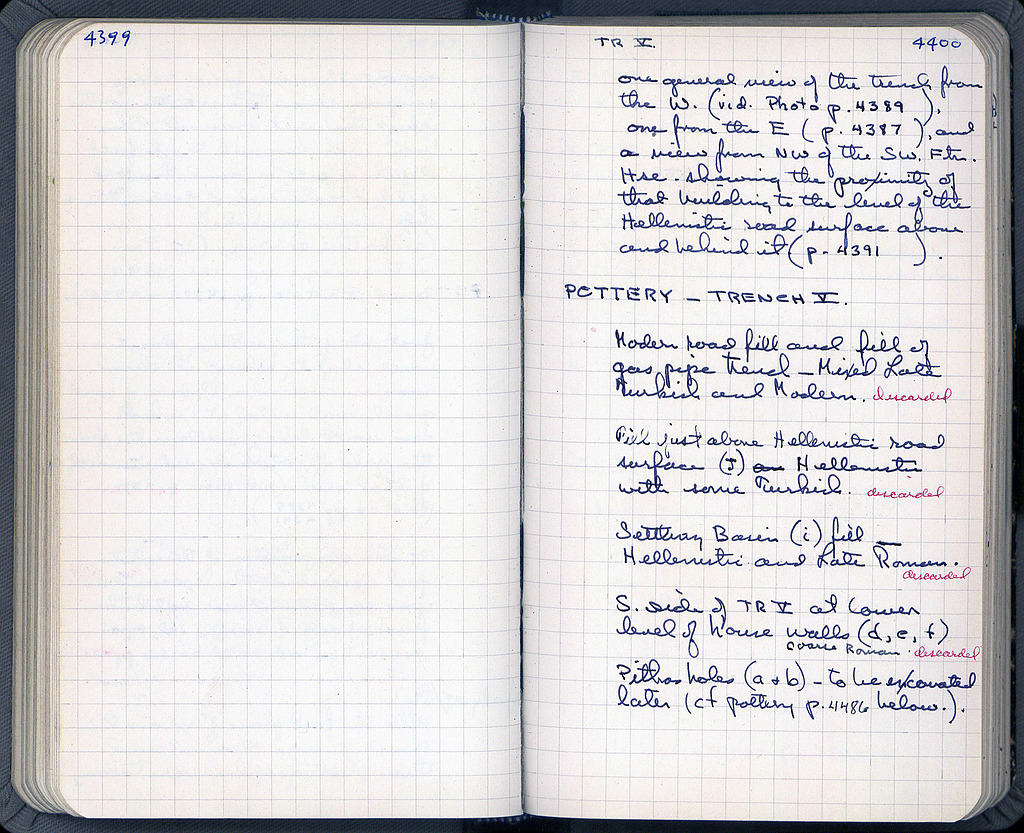 4399
TR V.
4400
one general view of the trench from
the W. (vid. Photo p. 4389 ),
one from the E ( p. 4387 ), and
a view from NW of the SW. Ftn.
Hse. showing the proximity of
that building to the level of the
Hellenistic road surface above
and behind it ( p. 4391 ).
POTTERY – TRENCH V.
Modern road fill and fill of
gas pipe trench – Mixed Late
Turkish and Modern. discarded
Fill just above Hellenistic road
surface (J) Hellenistic
with some Turkish. discarded
Settling Basin (i) fill —
Hellenistic and Late Roman.
discarded
S. side of TR V at lower
level of house walls (d, e, f)
coarse Roman. discarded
Pithos holes (a + b) – to be excavated
later (cf pottery p. 4486 below.).